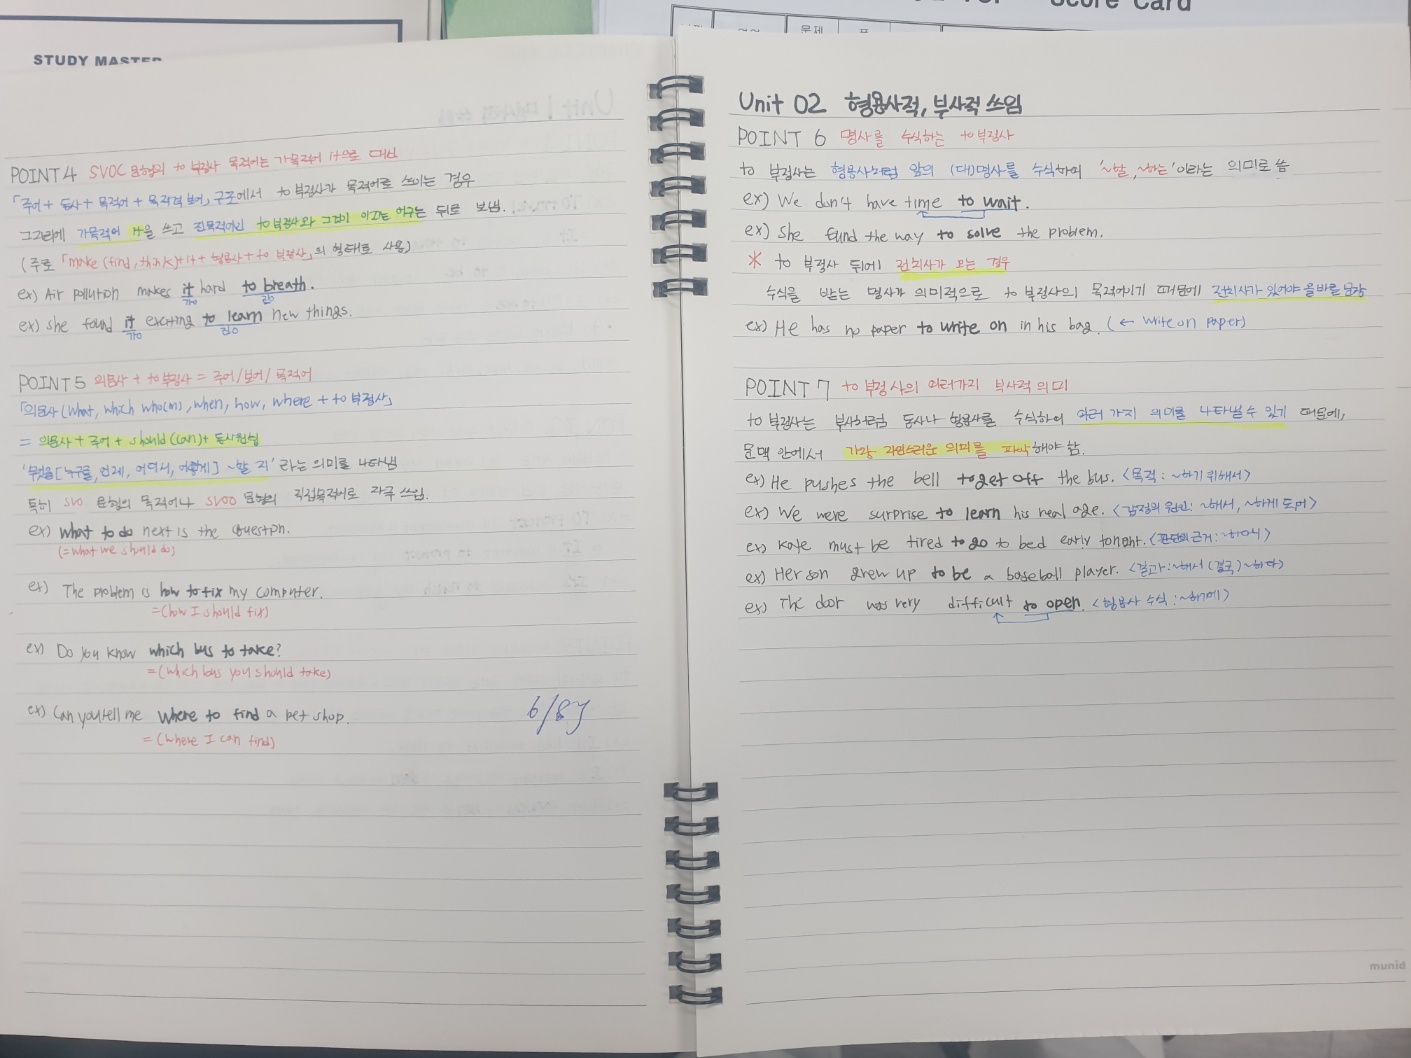 Score Card
문제
STUDY MASTER
POINT 4 SVOC 문형의 to 부정사 목적어는 가목적어 it으로 대신
「주어 + 동사 + 목적어 + 목적격 보어」 구조에서 to 부정사가 목적어로 쓰이는 경우
그자리에 가목적어 it을 쓰고 진목적어인 to 부정사와 그것이 이끄는 어구는 뒤로 보냄.
(주로 「make (find, think)+it + 형용사 + to 부정사」의 형태로 사용)
ex) Air pollution makes it hard to breath.
가O 진O
ex) she found it exciting to learn new things.
가O 진O
POINT 5 의문사 + to 부정사 = 주어/보어/목적어
「의문사 (what, which who(m), when, how, where + to 부정사」
= 의문사 + 주어 + should (can) + 동사원형
'무엇을 [누구를, 언제, 어디서, 어떻게] ~할 지' 라는 의미를 나타냄
특히 SVO 문형의 목적어나 SVOO 문형의 직접목적어로 자주 쓰임.
ex) what to do next is the question.
(=what we should do)
ex) The problem is how to fix my computer.
=(how I should fix)
ex) Do you know which bus to take?
=(which bus you should take)
ex) Can you tell me where to find a pet shop.
=(where I can find)
Unit 02 형용사적, 부사적 쓰임
POINT 6 명사를 수식하는 to 부정사
to 부정사는 형용사처럼 앞의 (대)명사를 수식하여 '~할, ~하는'이라는 의미로 씀
ex) We don't have time to wait.
ex) She fund the way to solve the problem.
* to 부정사 뒤에 전치사가 오는 경우
수식을 받는 명사가 의미적으로 to 부정사의 목적어이기 때문에 전치사가 있어야 올바른 문장
ex) He has no paper to write on in his bag. (← write on paper)
POINT 7 to 부정사의 여러가지 부사적 의미
to 부정사는 부사처럼 동사나 형용사를 수식하여 여러 가지 의미를 나타낼 수 있기 때문에,
문맥 안에서 가장 자연스러운 의미를 파악해야 함.
ex) He pushes the bell to get off the bus. <목적 : ~하기 위해서>
ex) We were surprise to learn his real age. <감정의 원인 : ~해서, ~하게 되어>
ex) Kate must be tired to go to bed early tonight. <판단의 근거 : ~하다니>
ex) Her son grew up to be a baseball player. <결과 : ~해서 (결국) ~하다>
ex) The door was very difficult to open. <형용사 수식 : ~하기에>
munid